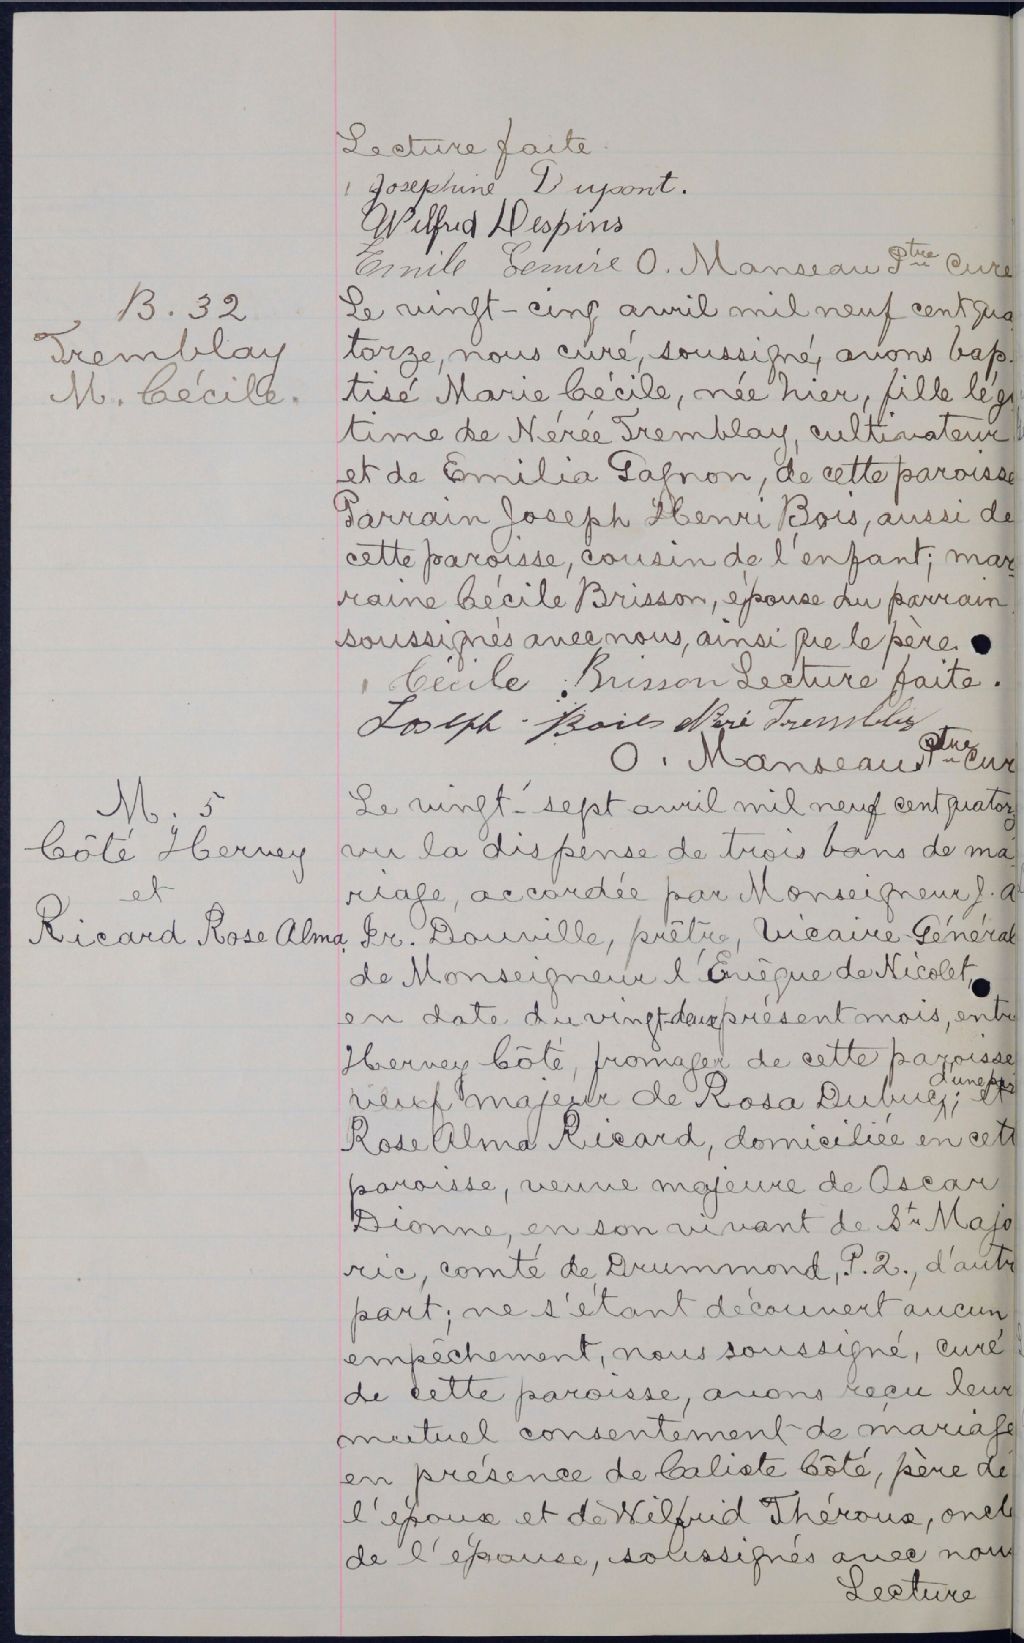 Lecture faite.
Josephine Dupont.
Wilfrid Despins
Emile Lemire O. Manseau Ptre Curé
B. 32
Tremblay
M. Cécile.
Le vingt-cinq avril mil neuf cent qua
torze, nous curé, soussigné, avons bap
tisé Marie Cécile, née hier, fille légi
time de Nérée Tremblay, cultivateur
et de Emilia Gagnon, de cette paroisse
Parrain Joseph Henri Bois, aussi de
cette paroisse, cousin de l'enfant; mar
raine Cécile Brisson, épouse du parrain
soussignés avec nous, ainsi que le père.
Cécile Brisson Lecture faite.
Joseph Bois Néré Tremblay
O. Manseau Ptre Cur
M. 5
Côté Hervey
et
Ricard Rose Alma
Le vingt-sept avril mil neuf cent quatorz
vu la dispense de trois bans de ma
riage, accordée par Monseigneur J. A
Ir. Douville, prêtre, Vicaire Général
de Monseigneur l'Evêque de Nicolet,
en date du vingt-deux présent mois, entre
Hervey Côté, fromager de cette paroisse
veuf majeur de Rosa Dubuc, d'une part; et
Rose Alma Ricard, domiciliée en cett
paroisse, veuve majeure de Oscar
Dionne, en son vivant de St Majo
ric, comté de Drummond, P.Q., d'autr
part; ne s'étant découvert aucun
empêchement, nous soussigné, curé
de cette paroisse, avons reçu leur
mutuel consentement de mariage
en présence de Calixte Côté, père de
l'époux et de Wilfrid Théroux, oncle
de l'épouse, soussignés avec nous
Lecture